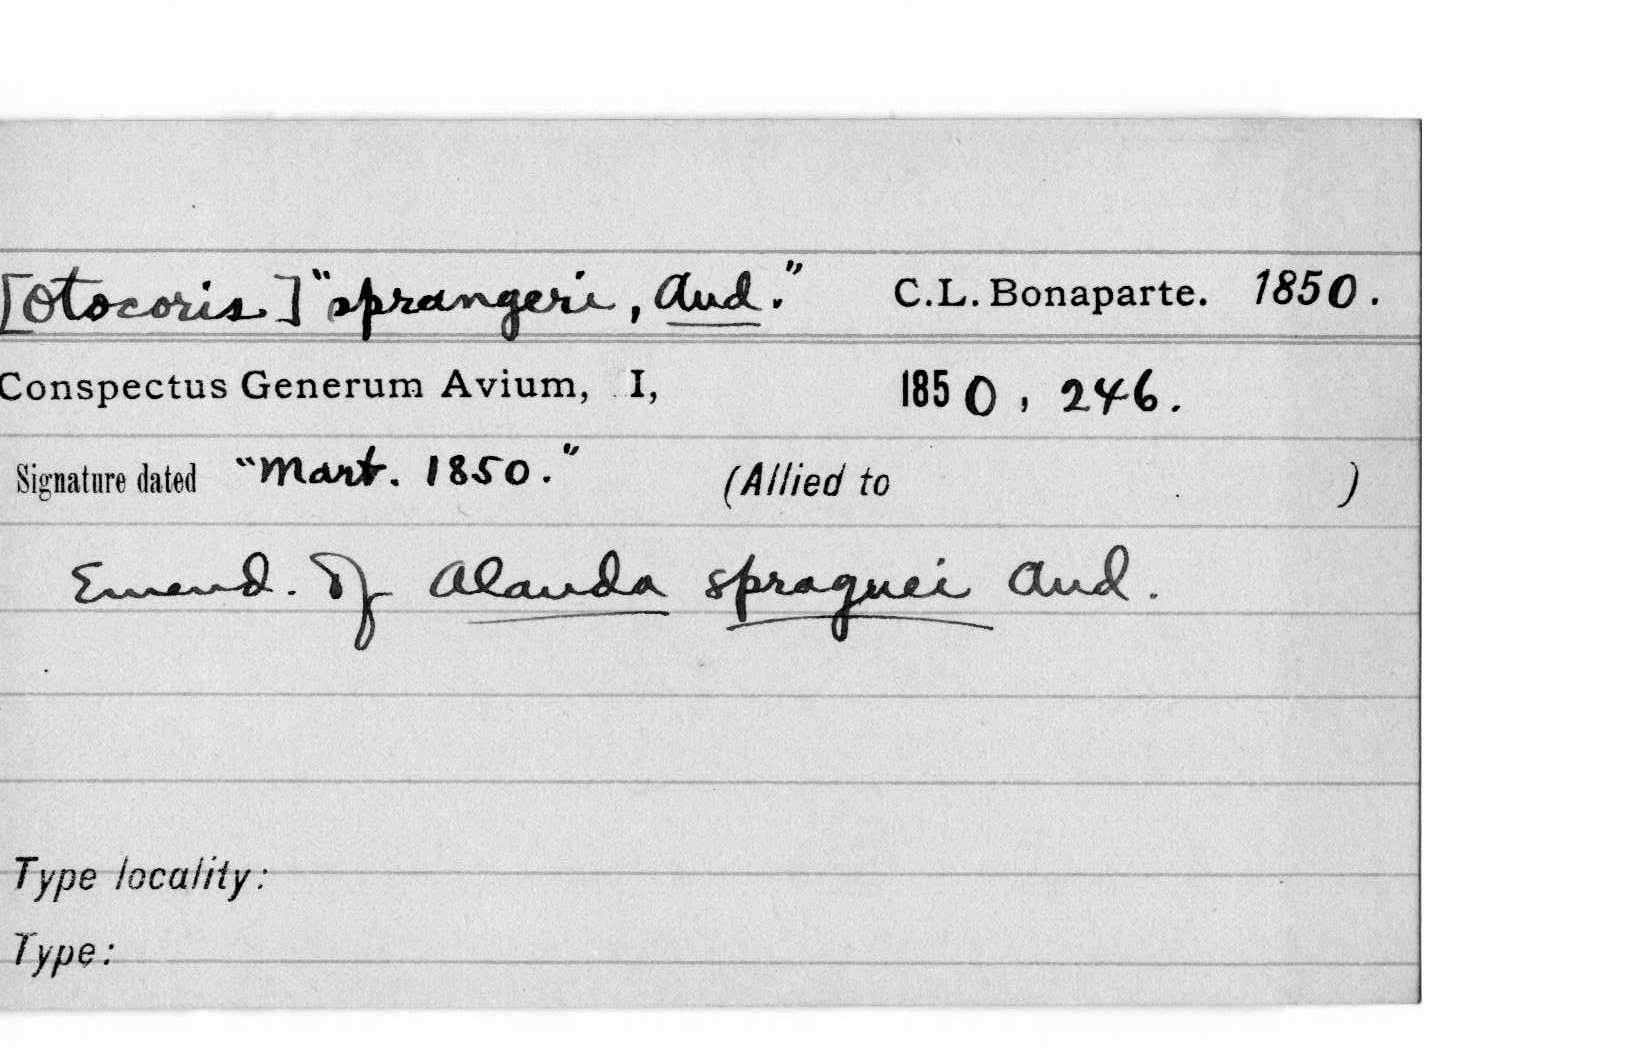 [Otocoris] "sprangeri, Aud." C.L. Bonaparte. 1850.
Conspectus Generum Avium, I, 1850, 246.
Signature dated "Mart. 1850." (Allied to )
Emend. of Alauda spraguei Aud.
Type locality:
Type: